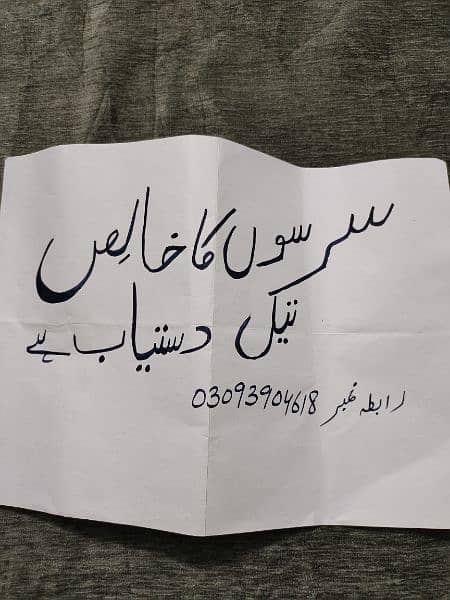 سرسوں کا خالص
تیل دستیاب ہے
رابطہ نمبر 03093904618